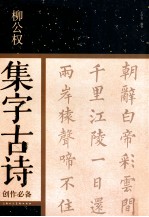 柳公权
集字古诗
创作必备
朝辭白帝彩雲間
千里江陵一日還
兩岸猿聲啼不住